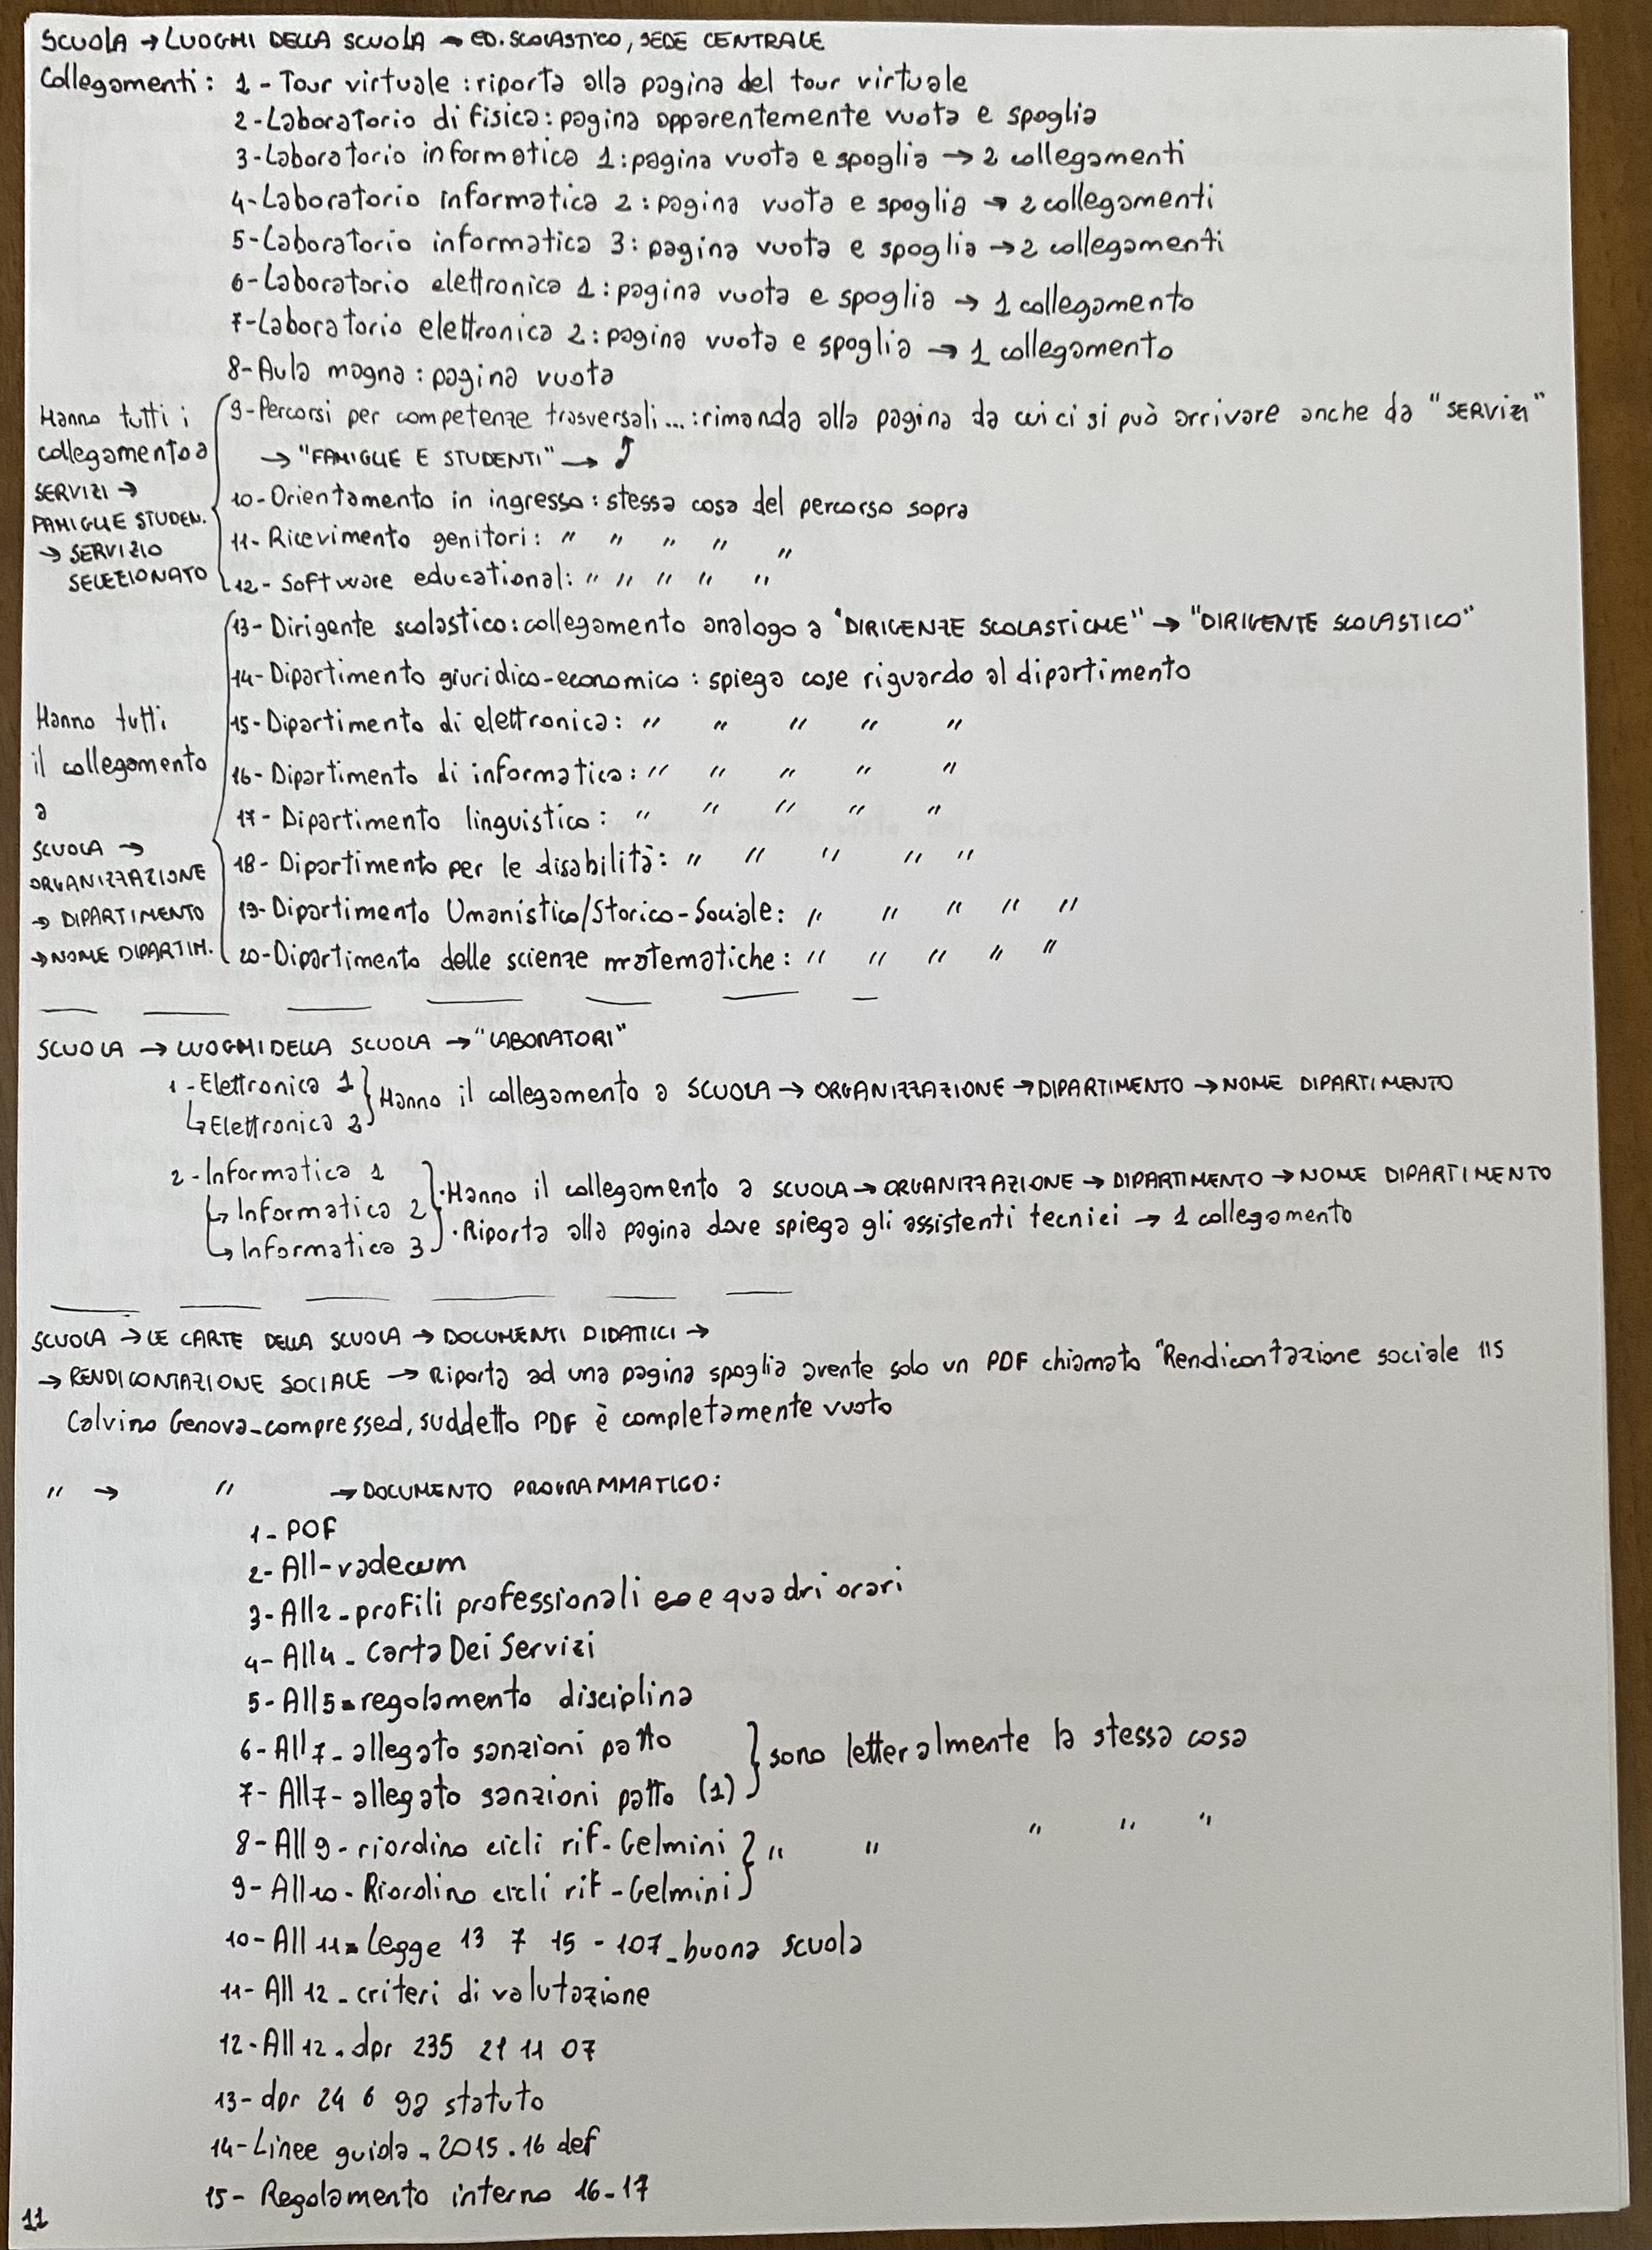 SCUOLA → LUOGHI DELLA SCUOLA → ED. SCOLASTICO, SEDE CENTRALE
Collegamenti: 1 - Tour virtuale : riporta alla pagina del tour virtuale
2-Laboratorio di fisica: pagina apparentemente vuota e spoglia
3-Laboratorio informatica 1: pagina vuota e spoglia → 2 collegamenti
4-Laboratorio informatica 2: pagina vuota e spoglia → 2 collegamenti
5-Laboratorio informatica 3: pagina vuota e spoglia → 2 collegamenti
6-Laboratorio elettronica 1: pagina vuota e spoglia → 1 collegamento
7-Laboratorio elettronica 2: pagina vuota e spoglia → 1 collegamento
8-Aula magna: pagina vuota
Hanno tutti i collegamento a SERVIZI → FAMIGLIE STUDEN. → SERVIZIO SELEZIONATO
9-Percorsi per competenze trasversali...: rimanda alla pagina da cui ci si può arrivare anche da "SERVIZI"
→ "FAMIGLIE E STUDENTI" → ⤴
10-Orientamento in ingresso: stessa cosa del percorso sopra
11-Ricevimento genitori: " " " " "
12-Software educational: " " " " "
Hanno tutti il collegamento a SCUOLA → ORGANIZZAZIONE → DIPARTIMENTO → NOME DIPARTIM.
13-Dirigente scolastico: collegamento analogo a "DIRIGENZE SCOLASTICHE" → "DIRIGENTE SCOLASTICO"
14-Dipartimento giuridico-economico: spiega cose riguardo al dipartimento
15-Dipartimento di elettronica: " " " " "
16-Dipartimento di informatica: " " " " "
17-Dipartimento linguistico: " " " " "
18-Dipartimento per le disabilità: " " " " "
19-Dipartimento Umanistico/Storico-Sociale: " " " " "
20-Dipartimento delle scienze matematiche: " " " " "
SCUOLA → LUOGHI DELLA SCUOLA → "LABORATORI"
1 - Elettronica 1
↳ Elettronica 2
Hanno il collegamento a SCUOLA → ORGANIZZAZIONE → DIPARTIMENTO → NOME DIPARTIMENTO
2 - Informatica 1
↳ Informatica 2
↳ Informatica 3
· Hanno il collegamento a SCUOLA → ORGANIZZAZIONE → DIPARTIMENTO → NOME DIPARTIMENTO
· Riporta alla pagina dove spiega gli assistenti tecnici → 1 collegamento
SCUOLA → LE CARTE DELLA SCUOLA → DOCUMENTI DIDATICI →
→ RENDICONTAZIONE SOCIALE → Riporta ad una pagina spoglia avente solo un PDF chiamato "Rendicontazione sociale IIS
Calvino Genova-compressed, suddetto PDF è completamente vuoto
" → " → DOCUMENTO PROGRAMMATICO:
1- POF
2- All-vadecum
3- All2-profili professionali e quadri orari
4- All4-Carta Dei Servizi
5- All5-regolamento disciplina
6- All7-allegato sanzioni patto
7- All7-allegato sanzioni patto (1)
sono letteralmente la stessa cosa
8- All9-riordino cicli rif-Gelmini
9- All10-Riordino cicli rif-Gelmini
" " " " "
10- All11-Legge 13 7 15 - 107_buona scuola
11- All12-criteri di valutazione
12- All12-dpr 235 21 11 07
13- dpr 24 6 98 statuto
14- Linee guida-2015.16 def
15- Regolamento interno 16-17
11